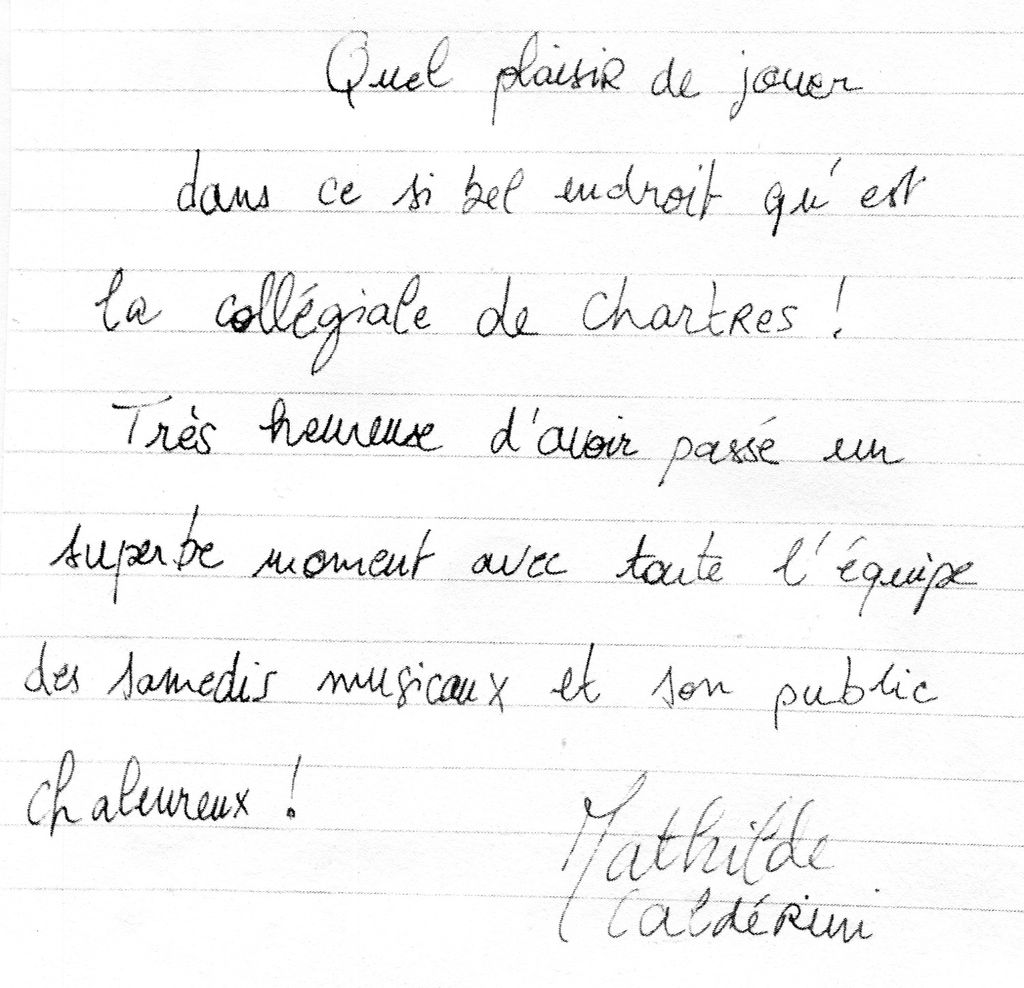 Quel plaisir de jouer
dans ce si bel endroit qu'est
la collégiale de Chartres !
Très heureuse d'avoir passé un
superbe moment avec toute l'équipe
des samedis musicaux et son public
chaleureux !
Mathilde
Caldérini